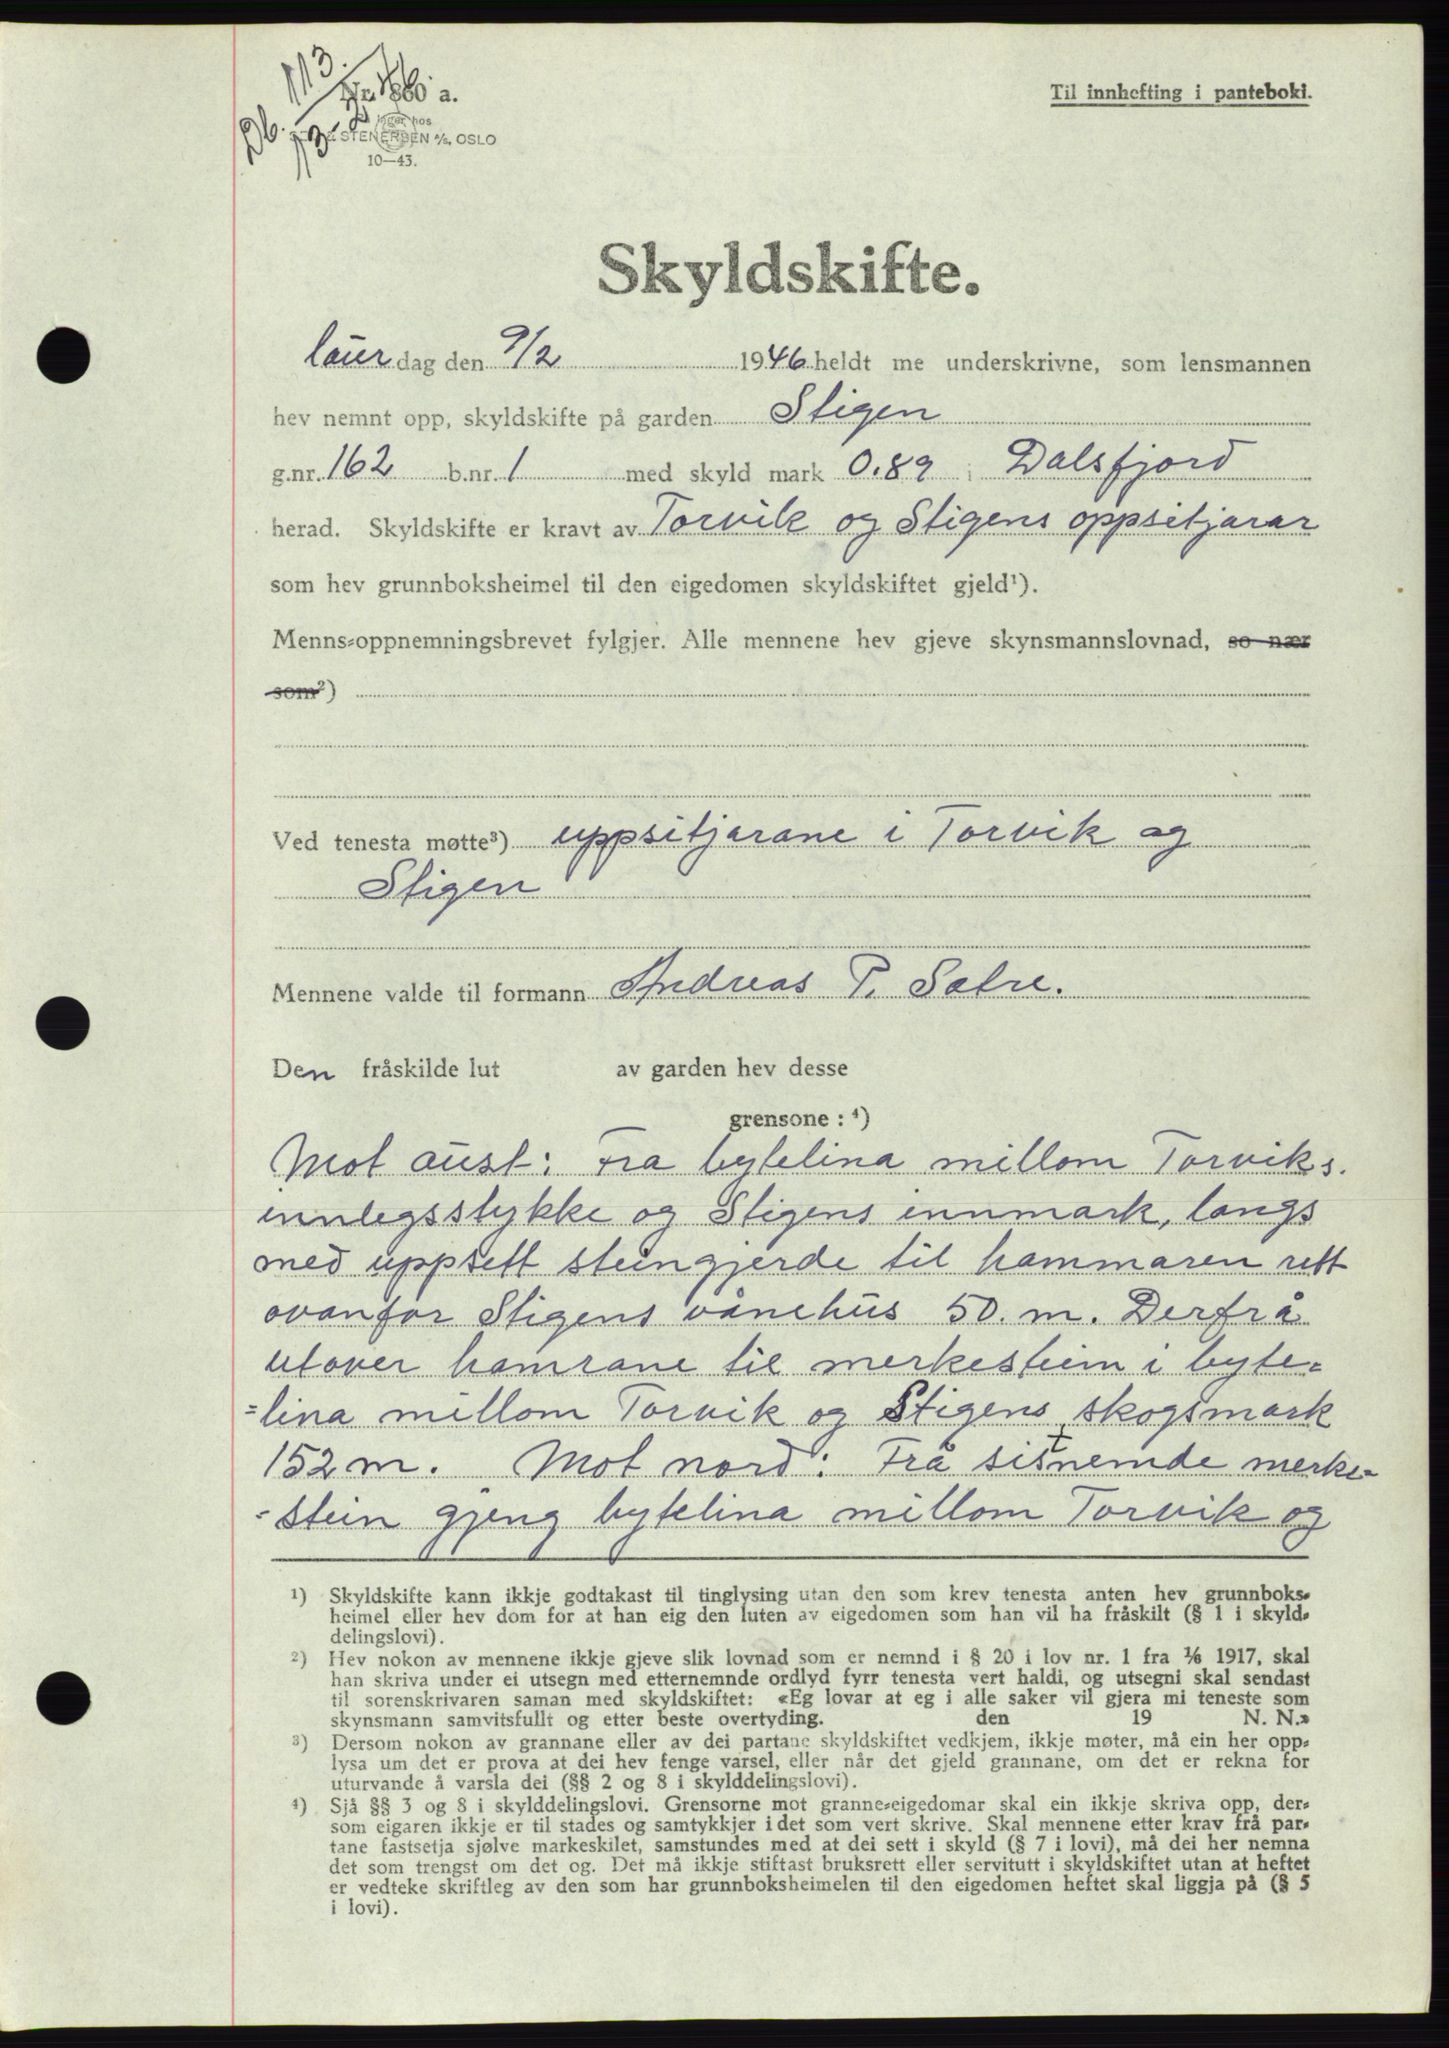 Db. 113.
Nr. 860 a.
Til innhefting i panteboki.
STENERSEN A/S, OSLO
10—43.
Skyldskifte.
laur dag den 9/2 1946 heldt me underskrivne, som lensmannen
hev nemnt opp, skyldskifte på garden Stigen
g.nr. 162 b.nr. 1 med skyld mark 0.89 i Dalsfjord
herad. Skyldskifte er kravt av Torvik og Stigens oppsitjarar
som hev grunnboksheimel til den eigedomen skyldskiftet gjeld¹).
Menns-oppnemningsbrevet fylgjer. Alle mennene hev gjeve skynsmannslovnad, so nær
som²)
Ved tenesta møtte³) uppsitjarane i Torvik og
Stigen
Mennene valde til formann Andreas P. Sætre.
Den fråskilde lut av garden hev desse
grensone: ⁴)
Mot aust: Fra bytelina millom Torviks.
innlegsstykke og Stigens innmark, langs
med uppsett steingjerde til hammaren rett
ovanfor Stigens vånehus 50. m. Derfrå
utover hamrane til merkestein i byte=
=lina millom Torvik og Stigens skogsmark
152 m. Mot nord: Frå sistnemde merke=
=stein gjeng bytelina millom Torvik og
¹) Skyldskifte kann ikkje godtakast til tinglysing utan den som krev tenesta anten hev grunnboks-
heimel eller hev dom for at han eig den luten av eigedomen som han vil ha fråskilt (§ 1 i skyld-
delingslovi).
²) Hev nokon av mennene ikkje gjeve slik lovnad som er nemnd i § 20 i lov nr. 1 fra 1/6 1917, skal
han skriva under ei utsegn med etternemnde ordlyd fyrr tenesta vert haldi, og utsegni skal sendast
til sorenskrivaren saman med skyldskiftet: «Eg lovar at eg i alle saker vil gjera mi teneste som
skynsmann samvitsfullt og etter beste overtyding. den 19 N. N.»
³) Dersom nokon av grannane eller av dei partane skyldskiftet vedkjem, ikkje møter, må ein her opp-
lysa um det er prova at dei hev fenge varsel, eller når det gjeld grannane, om det er rekna for
uturvande å varsla dei (§§ 2 og 8 i skylddelingslovi).
⁴) Sjå §§ 3 og 8 i skylddelingslovi. Grensorne mot granne-eigedomar skal ein ikkje skriva opp, der-
som eigaren ikkje er til stades og samtykkjer i det som vert skrive. Skal mennene etter krav frå par-
tane fastsetja sjølve markeskilet, samstundes med at dei sett i skyld (§ 7 i lovi), må dei her nemna
det som trengst om det og. Det må ikkje stiftast bruksrett eller servitutt i skyldskiftet utan at heftet
er vedteke skriftleg av den som har grunnboksheimelen til den eigedomen heftet skal liggja på (§ 5
i lovi).